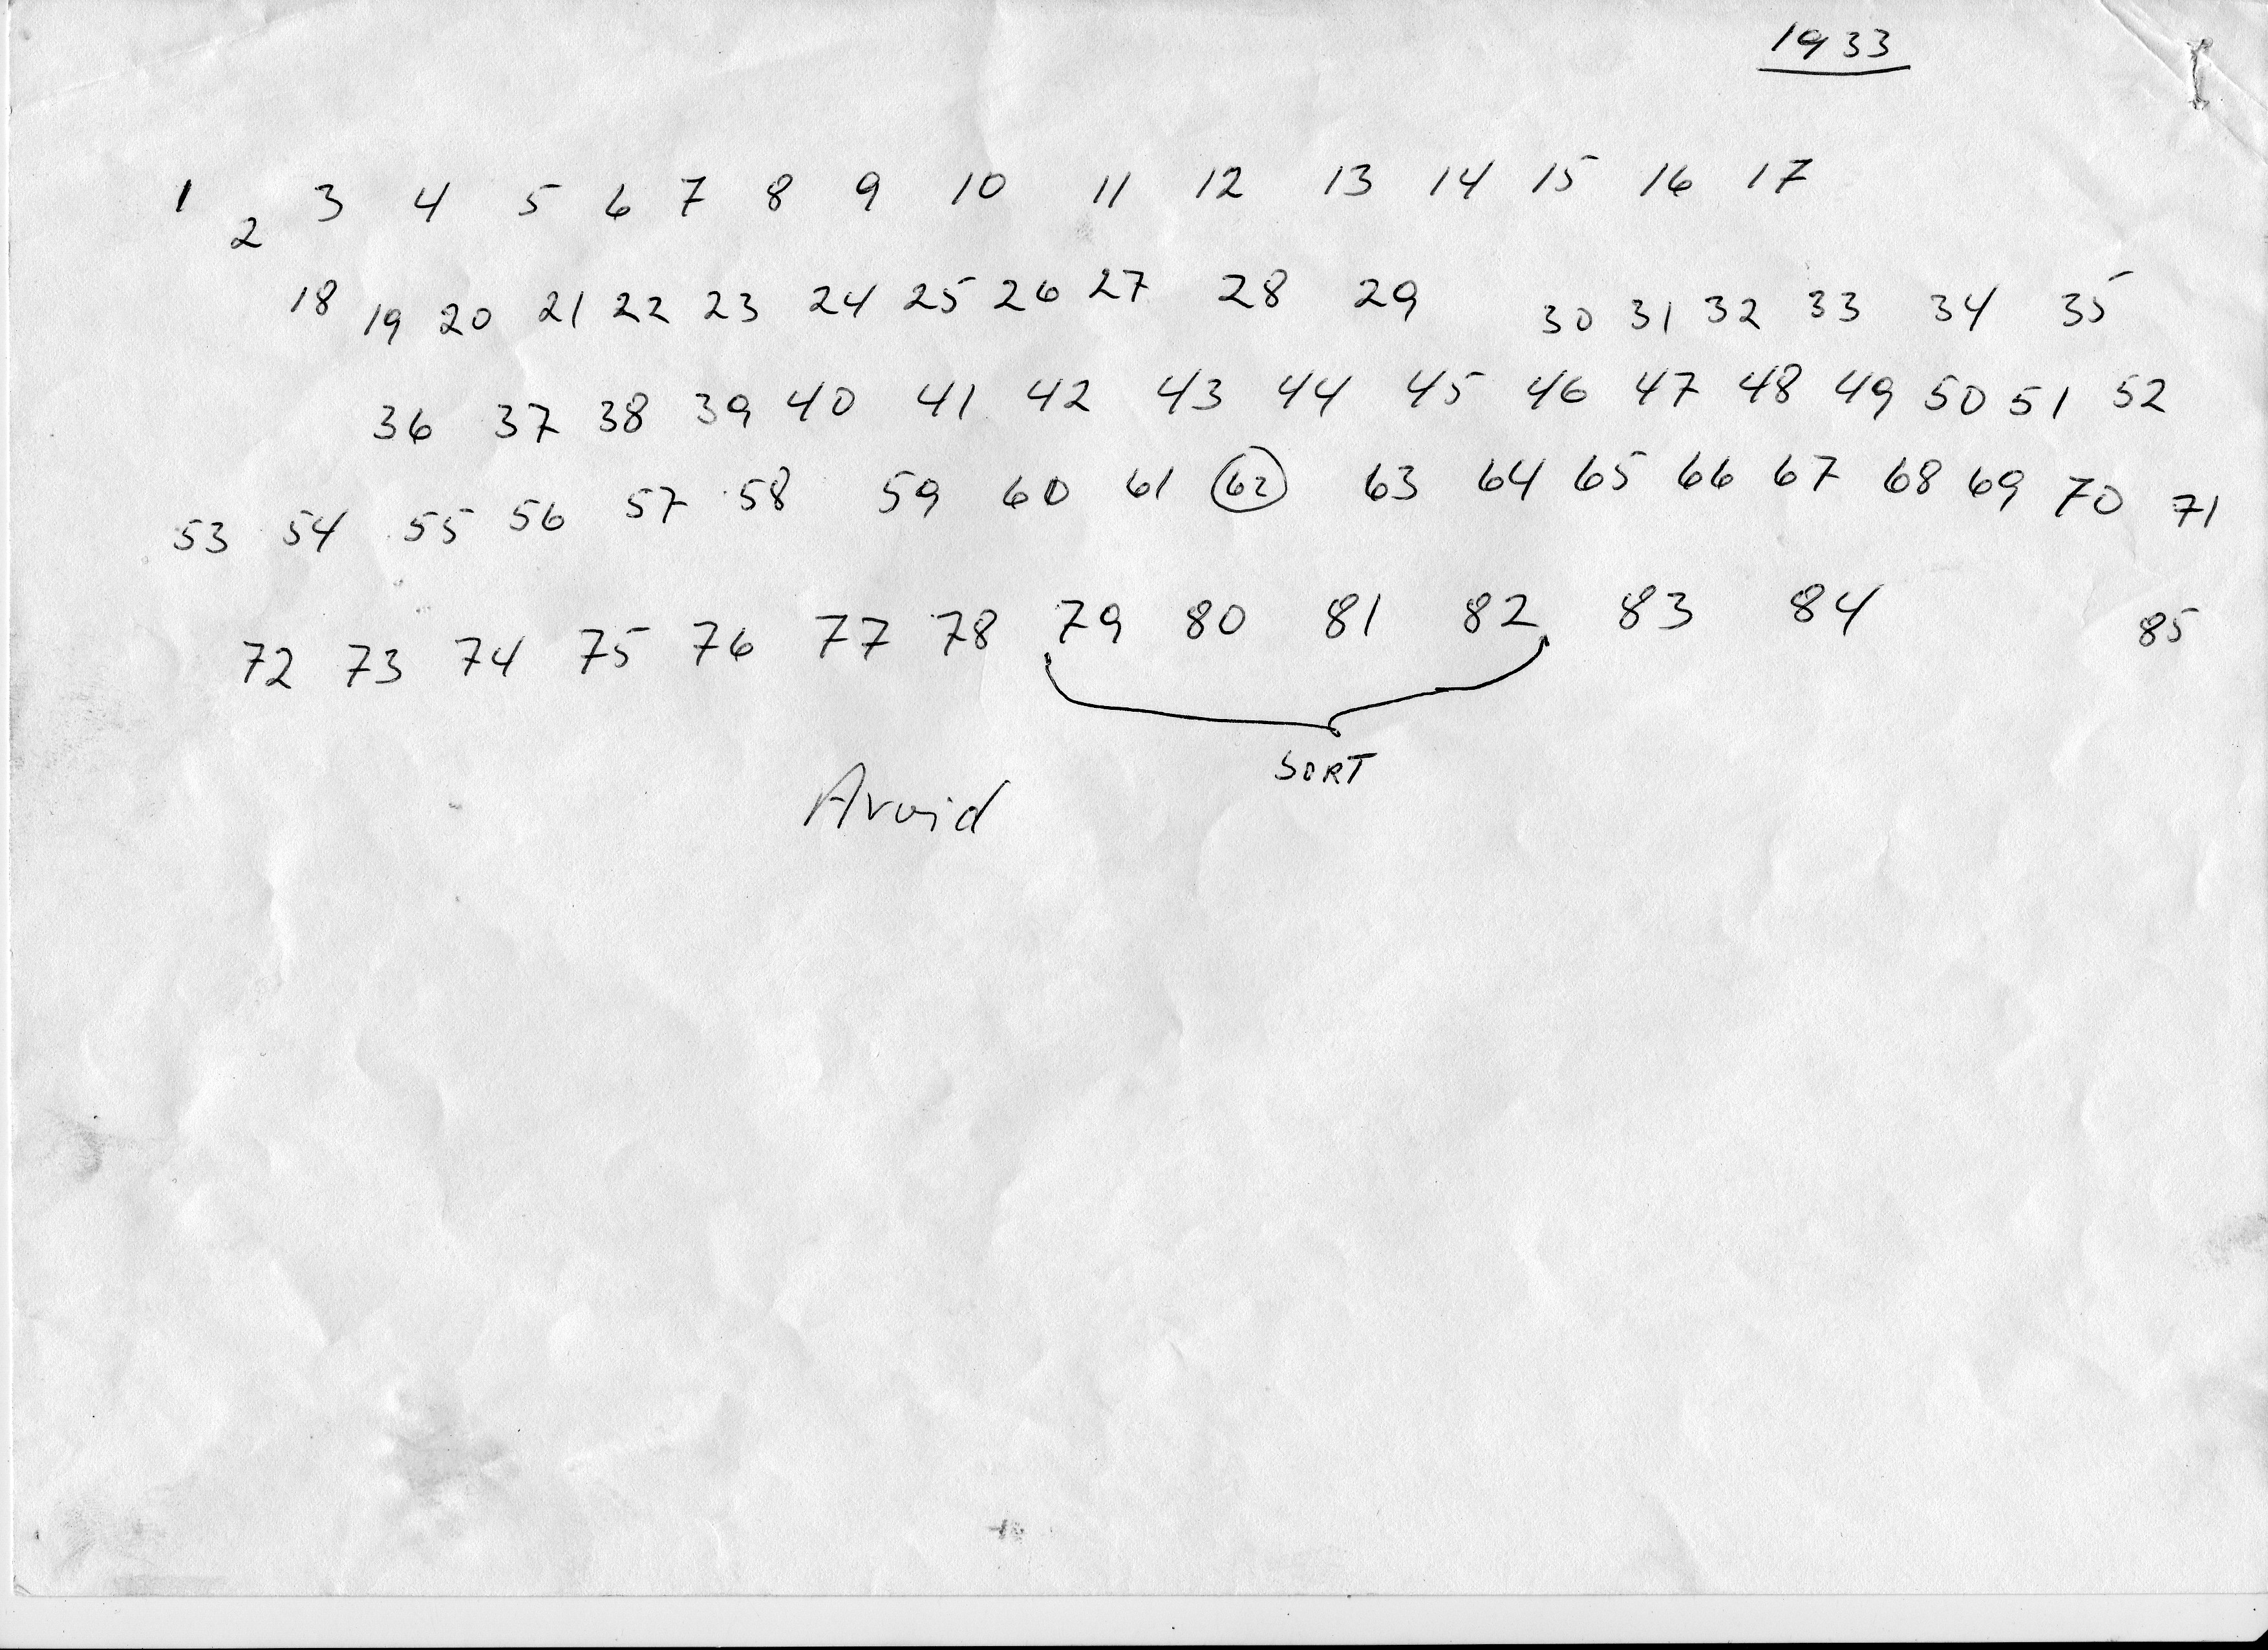 1933
1 2 3 4 5 6 7 8 9 10 11 12 13 14 15 16 17
18 19 20 21 22 23 24 25 26 27 28 29 30 31 32 33 34 35
36 37 38 39 40 41 42 43 44 45 46 47 48 49 50 51 52
53 54 55 56 57 58 59 60 61 62 63 64 65 66 67 68 69 70 71
72 73 74 75 76 77 78 79 80 81 82 83 84 85
SORT